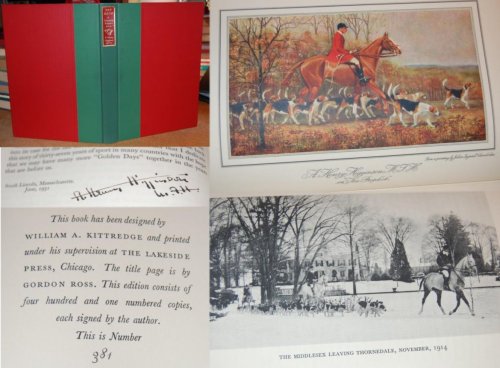 late in case for the
this story of thirty-seven years of sport in many countries with the
that we may have many more "Golden Days" together in the years
that are before us.
South Lincoln, Massachusetts.
June, 1931
This book has been designed by
WILLIAM A. KITTREDGE and printed
under his supervision at THE LAKESIDE
PRESS, Chicago. The title page is by
GORDON ROSS. This edition consists of
four hundred and one numbered copies,
each signed by the author.
This is Number
381
A. Henry Higginson, M.F.H.
THE MIDDLESEX LEAVING THORNEDALE, NOVEMBER, 1914